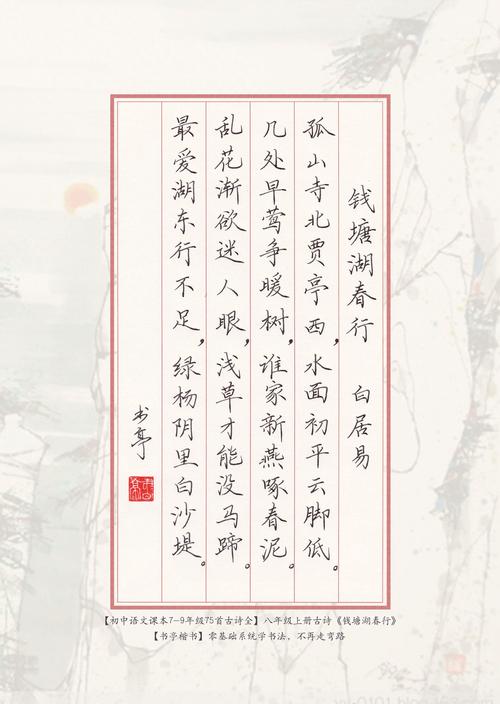 钱塘湖春行 白居易
孤山寺北贾亭西，水面初平云脚低。
几处早莺争暖树，谁家新燕啄春泥。
乱花渐欲迷人眼，浅草才能没马蹄。
最爱湖东行不足，绿杨阴里白沙堤。
书亭
【初中语文课本7-9年级75首古诗全】八年级上册古诗《钱塘湖春行》
【书亭楷书】零基础系统学书法，不再走弯路